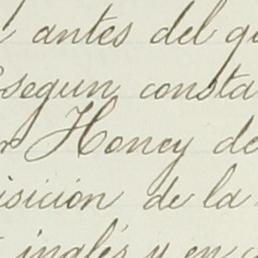 antes del
segun consta
Honey de
isición de la
inglés y en